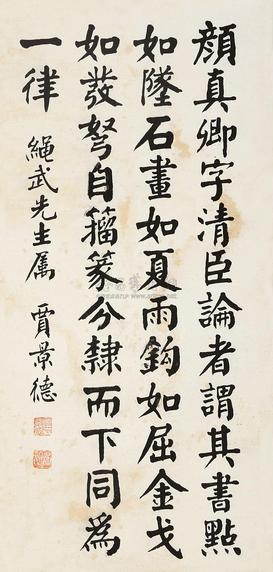 顏真卿字清臣論者謂其書點
如墜石畫如夏雨鈎如屈金戈
如發弩自籀篆分隸而下同為
一律
繩武先生属 賈景德